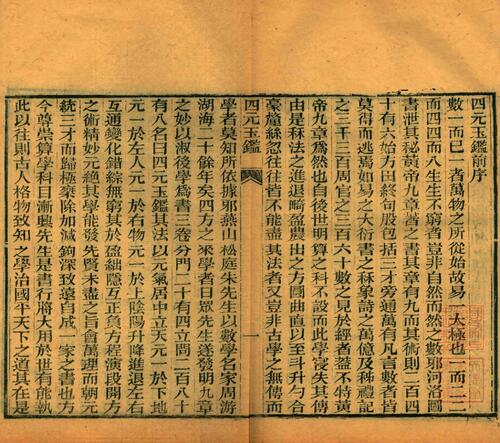 四元玉鑑前序
數一而已一者萬物之所從始故易一太極也一而二二
而四四而八生生不窮者豈非自然而然之數邪河洛圖
書泄其秘黃帝九章著之書其章有九而其術則二百四
十有六始方田終句股包括三才旁通萬有凡言數者皆
莫得而逃焉如易之大衍書之秝象詩之萬億及秭禮記
之三千三百周官之三百六十數之見於經者蓋不特黃
帝九章爲然也自後世明算之科不設而此學浸失其傳
由是秝法之進退畸盈農由之方圓曲直以至斗升勺合
豪釐絲忽往往皆不能盡其法者又豈非古學之無傳而
四元玉鑑
一
學者莫知所依據邪燕山松庭朱先生以數學名家周游
湖海二十餘年矣四方之來學者日眾先生遂發明九章
之妙以淑後學爲書三卷分門二十有四立問二百八十
有八名曰四元玉鑑其法以元氣居中立天元一於下地
元一於左人元一於右物元一於上陰陽升降進退左右
互通變化錯綜無窮其於盈絀隱互正負方程演段開方
之術精妙元絕其學能發先賢未盡之旨會萬理而朝元
統三才而歸極乘除加減鉤深致遠自成一家之書也方
今尊崇算學科目漸興先生是書行將大用於世有能執
此以往則古人格物致知之學治國平天下之道其在是